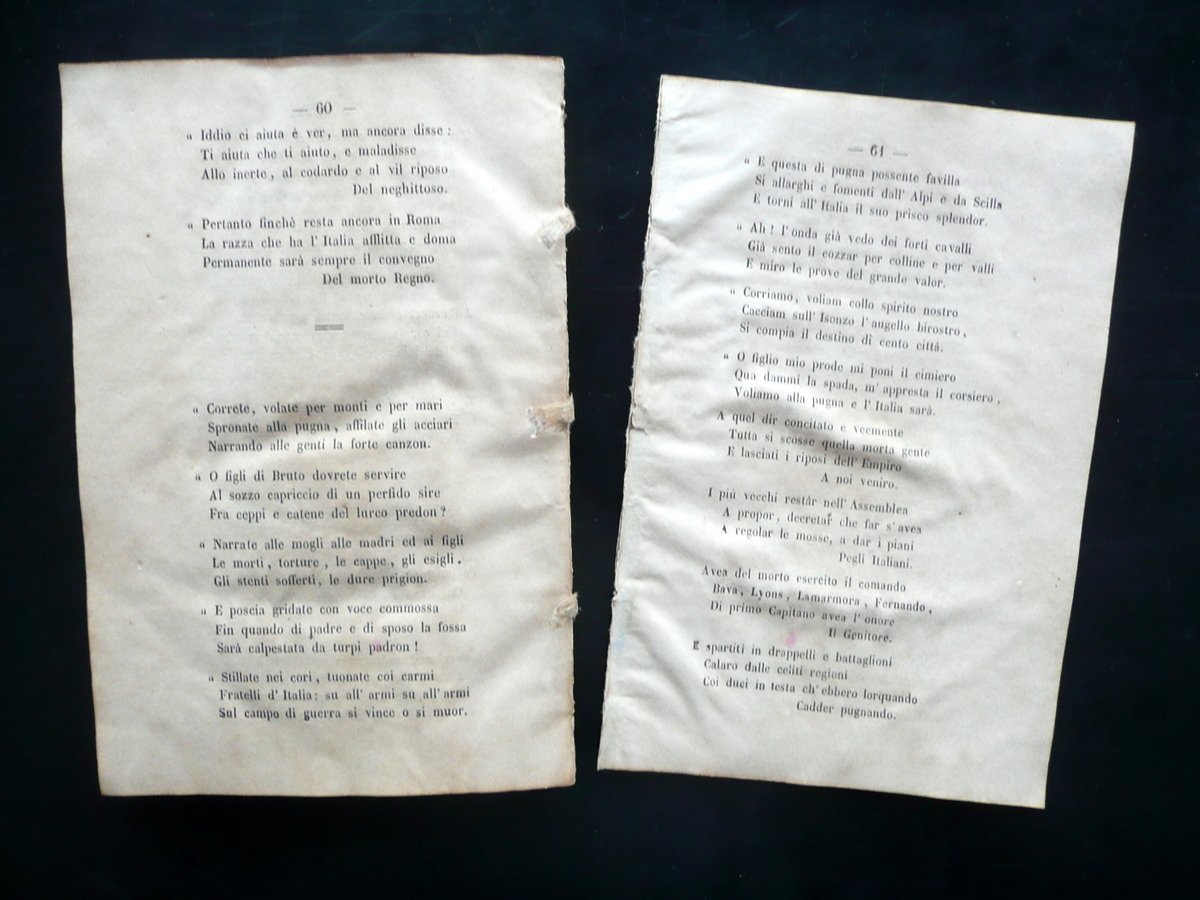 — 60 —
« Iddio ci aiuta è ver, ma ancora disse:
Ti aiuta che ti aiuto, e maladisse
Allo inerte, al codardo e al vil riposo
Del neghittoso.
« Pertanto finchè resta ancora in Roma
La razza che ha l' Italia afflitta e doma
Permanente sarà sempre il convegno
Del morto Regno.
« Correte, volate per monti e per mari
Spronate alla pugna, affilate gli acciari
Narrando alle genti la forte canzon.
« O figli di Bruto dovrete servire
Al sozzo capriccio di un perfido sire
Fra ceppi e catene del lurco predon?
« Narrate alle mogli alle madri ed ai figli
Le morti, torture, le cappe, gli esigli.
Gli stenti sofferti, le dure prigion.
« E poscia gridate con voce commossa
Fin quando di padre e di sposo la fossa
Sarà calpestata da turpi padron!
« Stillate nei cori, tuonate coi carmi
Fratelli d' Italia: su all' armi su all' armi
Sul campo di guerra si vince o si muor.
— 61 —
« E questa di pugna possente favilla
Si allarghi e fomenti dall' Alpi e da Scilla
E torni all' Italia il suo prisco splendor.
« Ah! l' onda già vedo dei forti cavalli
Già sento il cozzar per colline e per valli
E miro le prove del grande valor.
« Corriamo, voliam collo spirito nostro
Cacciam sull' Isonzo l' augello birostro,
Si compia il destino di cento città.
« O figlio mio prode mi poni il cimiero
Qua dammi la spada, m' appresta il corsiero,
Voliamo alla pugna e l' Italia sarà.
A quel dir concitato e veemente
Tutta si scosse quella morta gente
E lasciati i riposi dell' Empiro
A noi veniro.
I più vecchi restár nell' Assemblea
A propor, decretar che far s' avea
A regolar le mosse, a dar i piani
Pegli Italiani.
Avea del morto esercito il comando
Bava, Lyons, Lamarmora, Fernando,
Di primo Capitano avea l' onore
Il Genitore.
E spartiti in drappelli e battaglioni
Calaro dalle celiti regioni
Coi duci in testa ch' ebbero lorquando
Cadder pugnando.